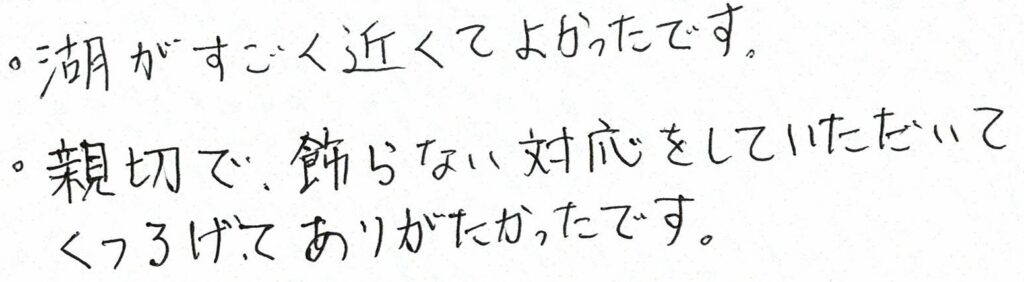 。湖がすごく近くてよかったです。
。親切で、飾らない対応をしていただいて
くつろげてありがたかったです。